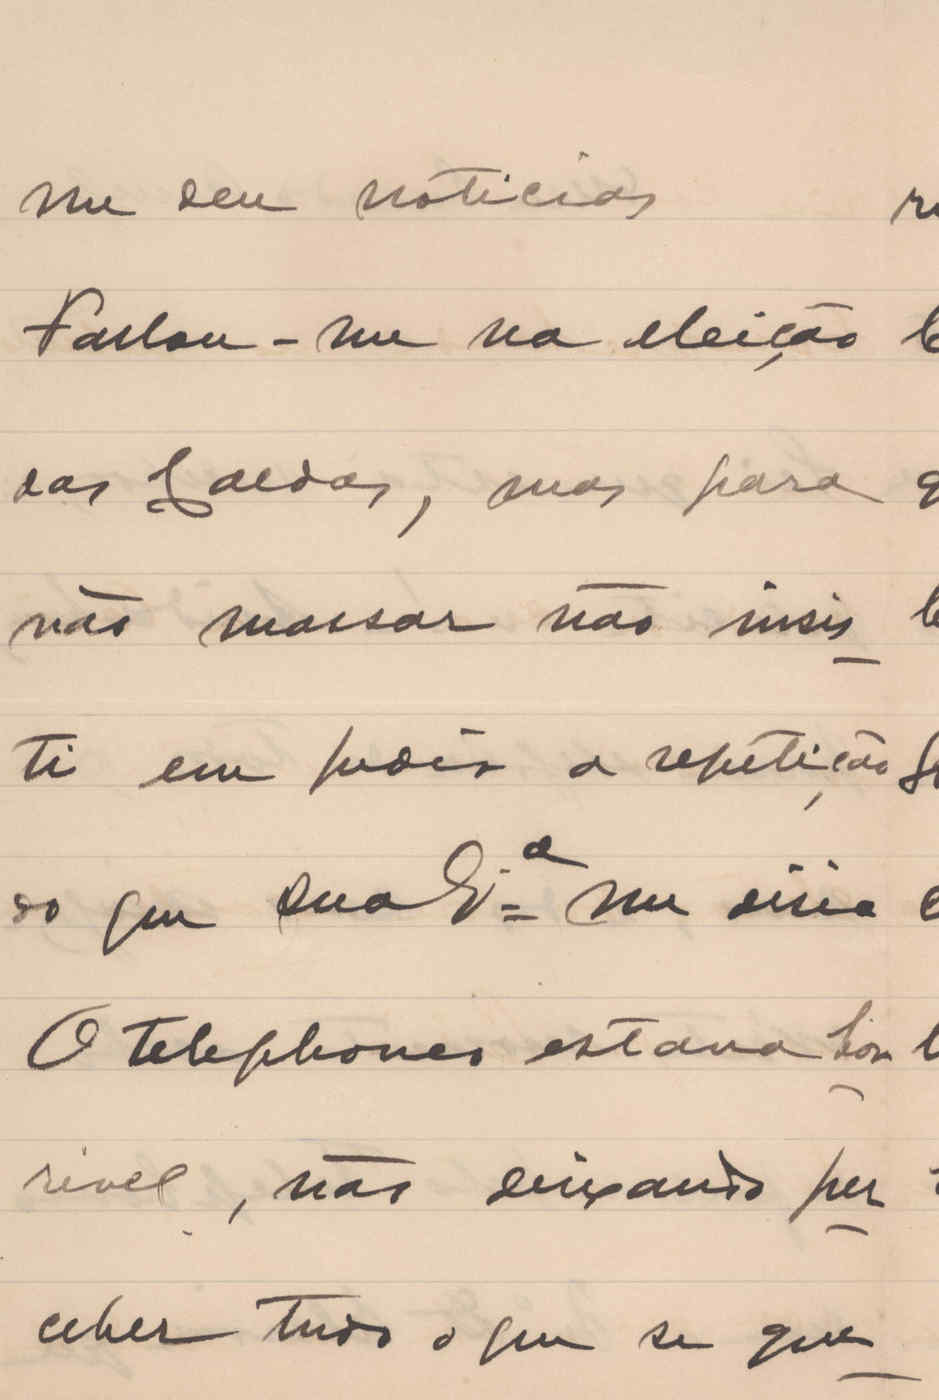 me deu noticias
Fallou-me na eleição
das Caldas, mas para
não massar não insis
ti em pedir a repetição
do que sua Ex.ª me dizia
O telephone estava hor
rivel, não deixando per
ceber tudo o que se que